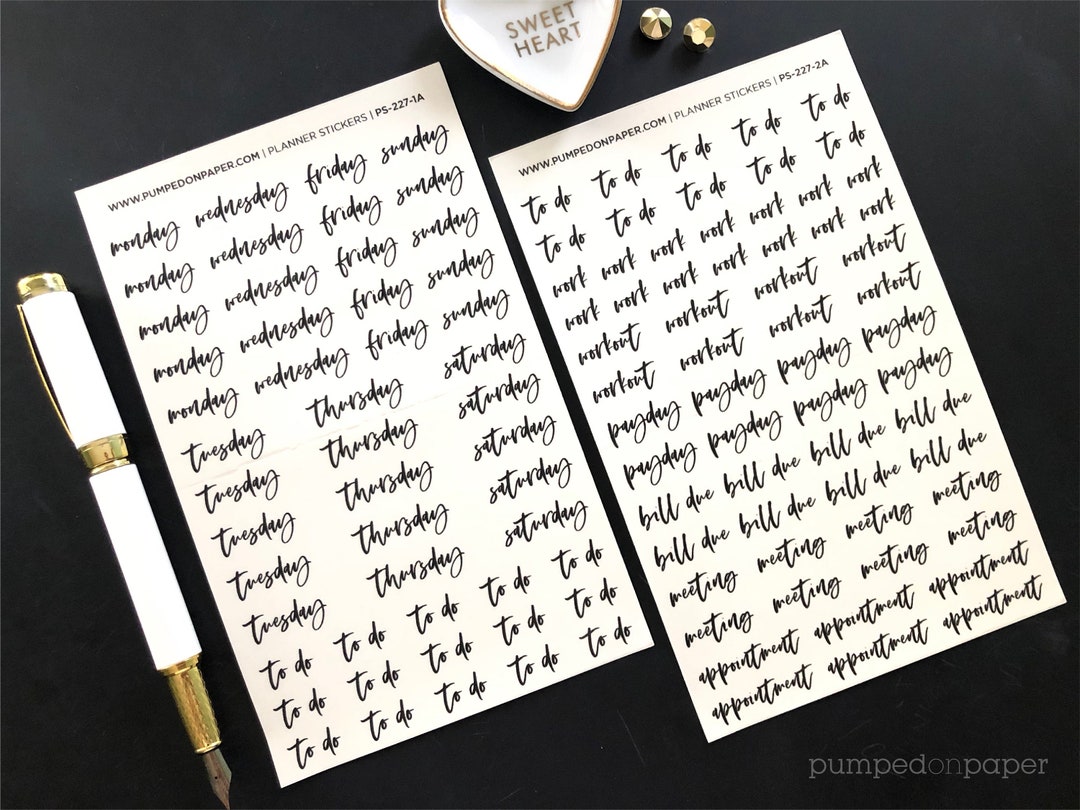 SWEET
HEART
WWW.PUMPEDONPAPER.COM | PLANNER STICKERS | PS-227-1A
monday wednesday friday sunday
monday wednesday friday sunday
monday wednesday friday sunday
monday wednesday friday sunday
monday wednesday friday sunday
tuesday thursday saturday
tuesday thursday saturday
tuesday thursday saturday
tuesday thursday saturday
tuesday thursday saturday
to do to do to do to do to do
to do to do to do to do to do
to do to do to do to do to do
WWW.PUMPEDONPAPER.COM | PLANNER STICKERS | PS-227-2A
to do to do to do to do to do
to do to do to do to do to do
work work work work work work work
work work work work work work work
workout workout workout workout
workout workout workout workout
payday payday payday payday
payday payday payday payday
bill due bill due bill due bill due
bill due bill due bill due bill due
meeting meeting meeting meeting
meeting meeting meeting meeting
appointment appointment appointment
appointment appointment appointment
pumpedonpaper